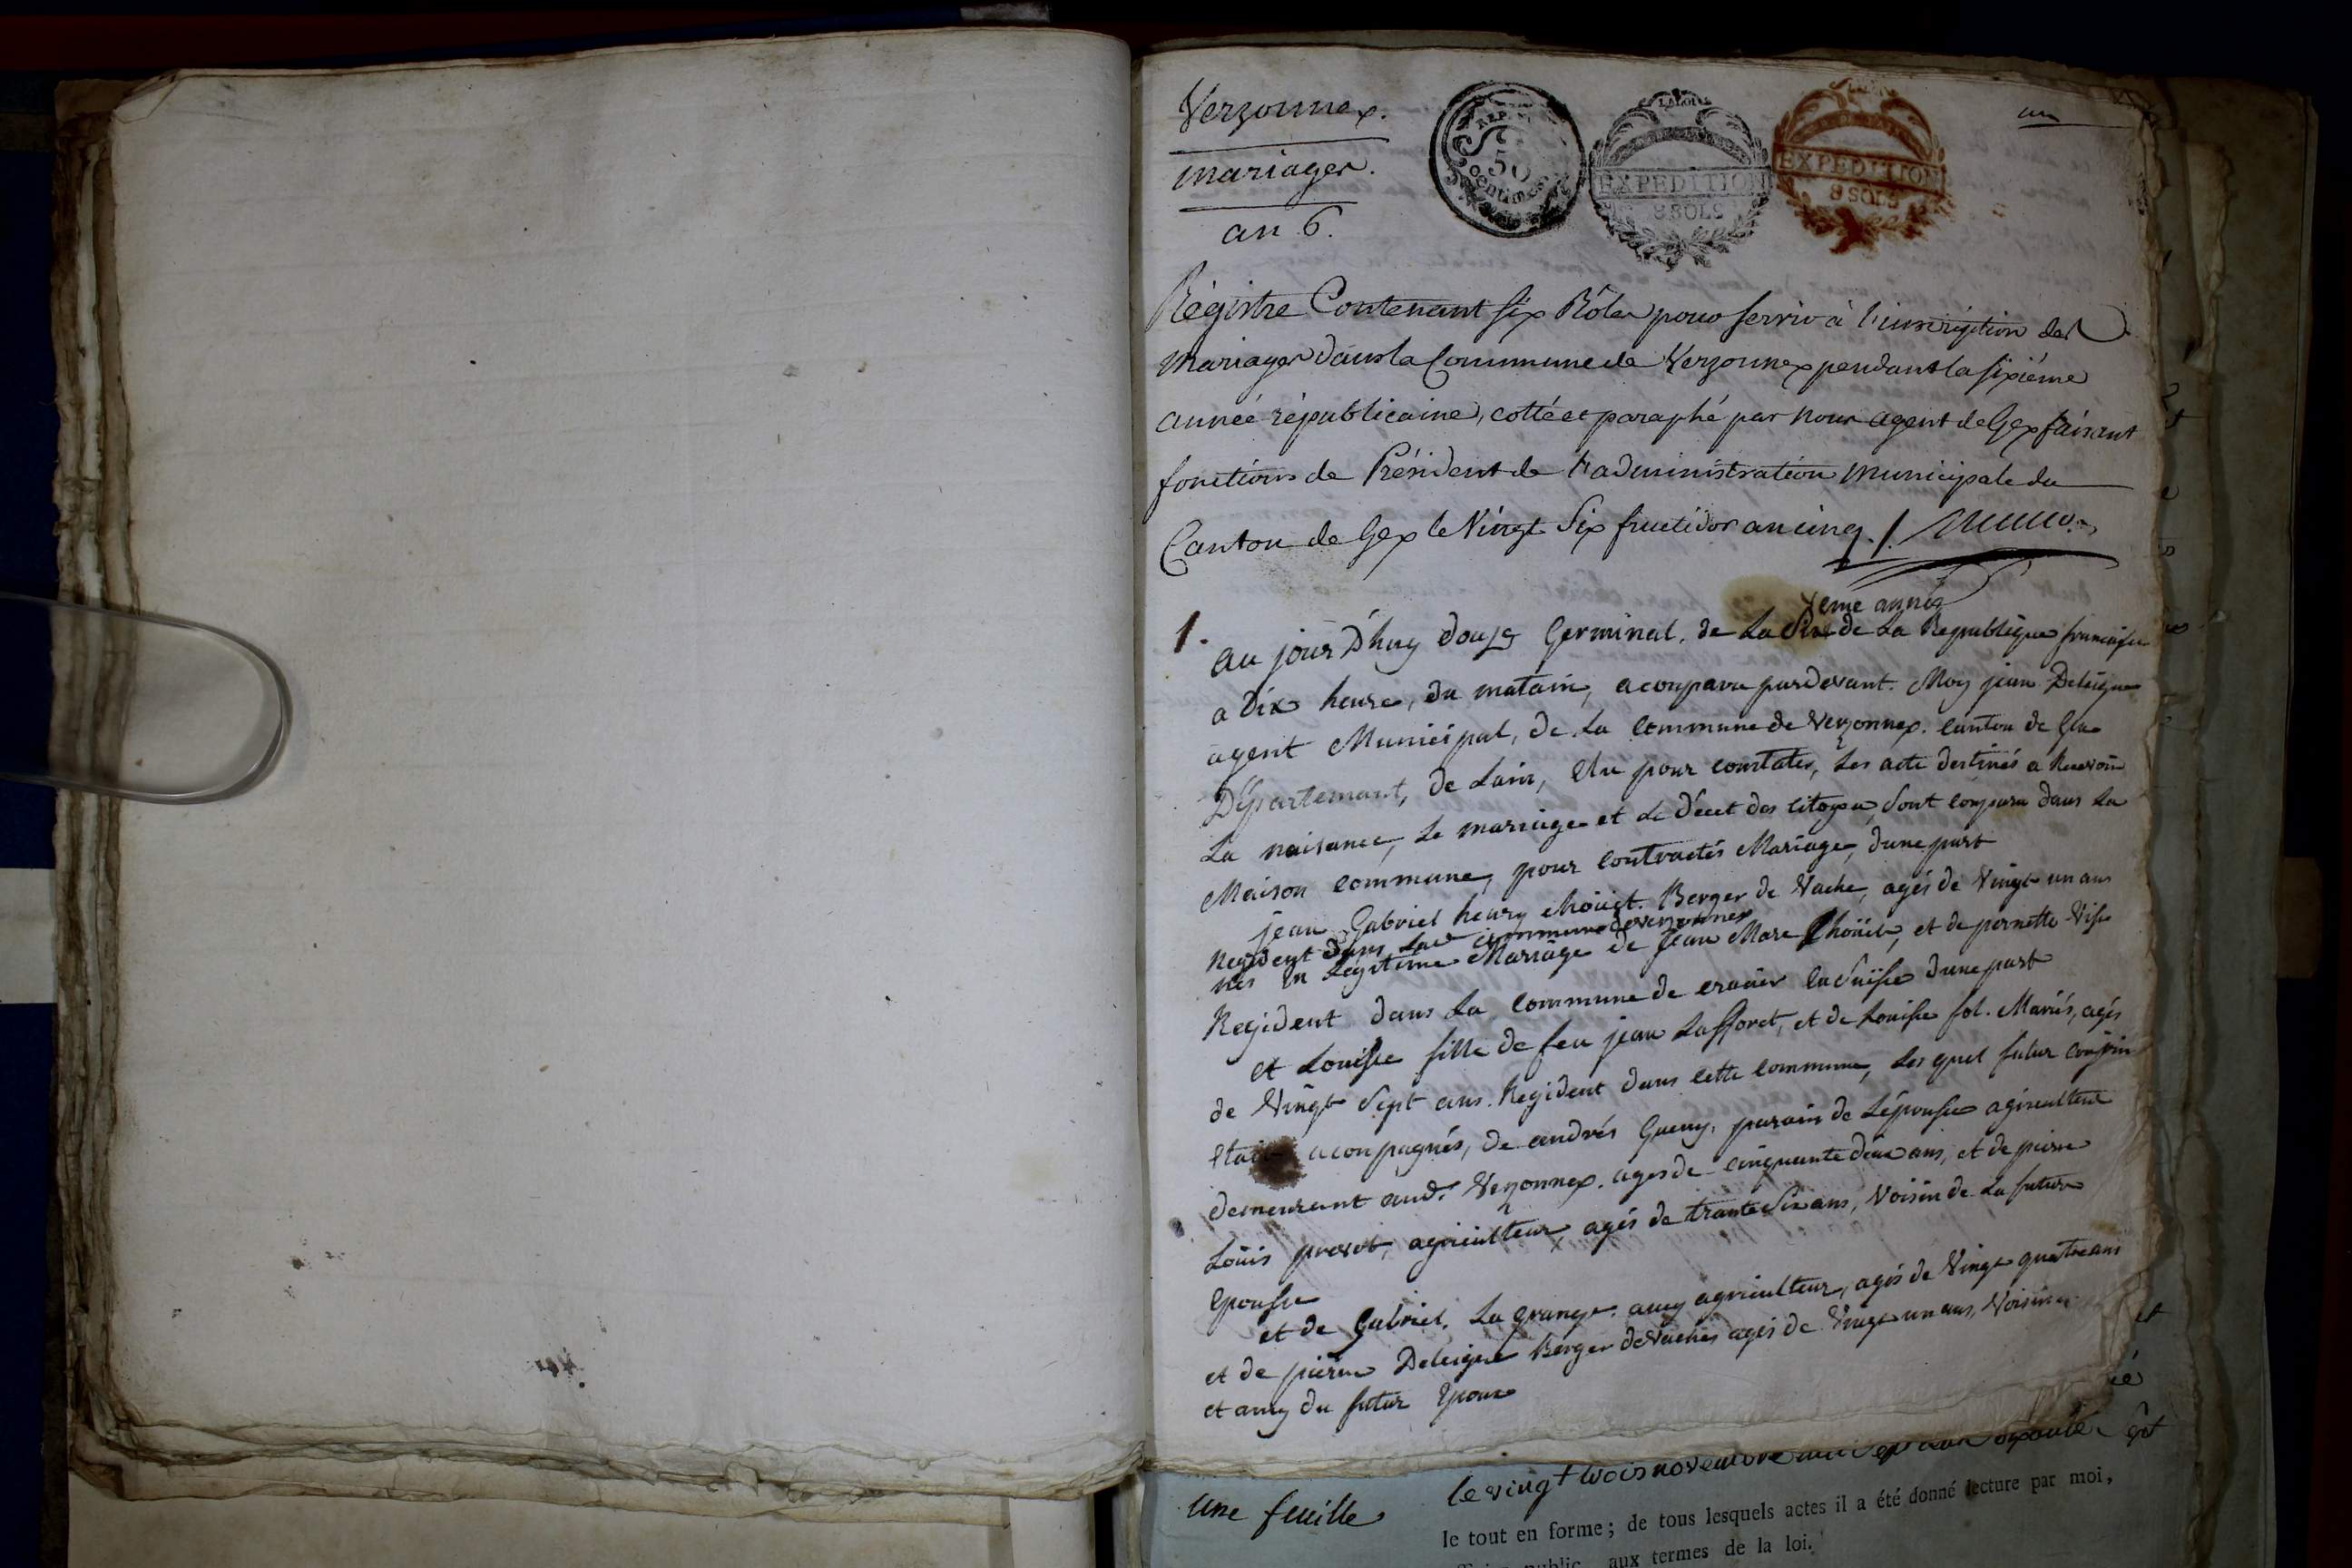 Verzonnex.
mariages.
an 6.
REP.
50
centimes
LA LOI
EXPEDITION
8 SOLS
EXPEDITION
8 SOLS
un
Régistre Contenant six Rôles pour servir à l'inscription des
mariages dans la Commune de Verzonnex pendant la sixiéme
année républicaine, cotté et paraphé par nous agent de Gex faisant
fonctions de Président de l'administration municipale du
Canton de Gex le Vingt Six fructidor an cinq ./.
xeme année
1. au jour D'huy douze Germinal. de La Six de La Republique francaise
a Dix heure, du matain, a conparu pardevant. Moy jean Deleigne
agent Municipal, de La Commune de Verzonnex. Canton de Gex
Département, de Lain, Elu pour constater, Les acte destinés a Recevoir
La naisance, Le mariage et Le décet des citoyen, Sont Conparu dans La
Maison Commune, pour Contractés Mariage, dune part
jean Gabriel henry choüet. Berger de Vache, agés de Vingt un ans
Regident dans La commune de verzonnex
nés en Legitime Mariage de jean Marc Choüet, et de pernette
Regident dans La Commune de en Suisse dune part
et Louisse fille de feu jean Lafforet, et de Louisse fol. Mariés, agés
de Vingt Sept ans. Regident dans cette Commune, Les quel futur Conjoin
aconpagnés, de andrés parain de Lépouse agriculteur
demeurant aud. Verzonnex. agés de cinquante deux ans, et de pierre
Loüis prevot, agriculteur, agés de trante Six ans, Voisin de La future
Epouse
et de Gabriel. La grange. amy agriculteur, agés de Vingt quatre ans
et de pierre Deleigne Berger de Vaches agés de Vingt un ans, Voisin
et amy du futur Epoux
et
ié
une feuille
le vingt trois novembre mil sept soixante
le tout en forme; de tous lesquels actes il a été donné lecture par moi,
public aux termes de la loi.